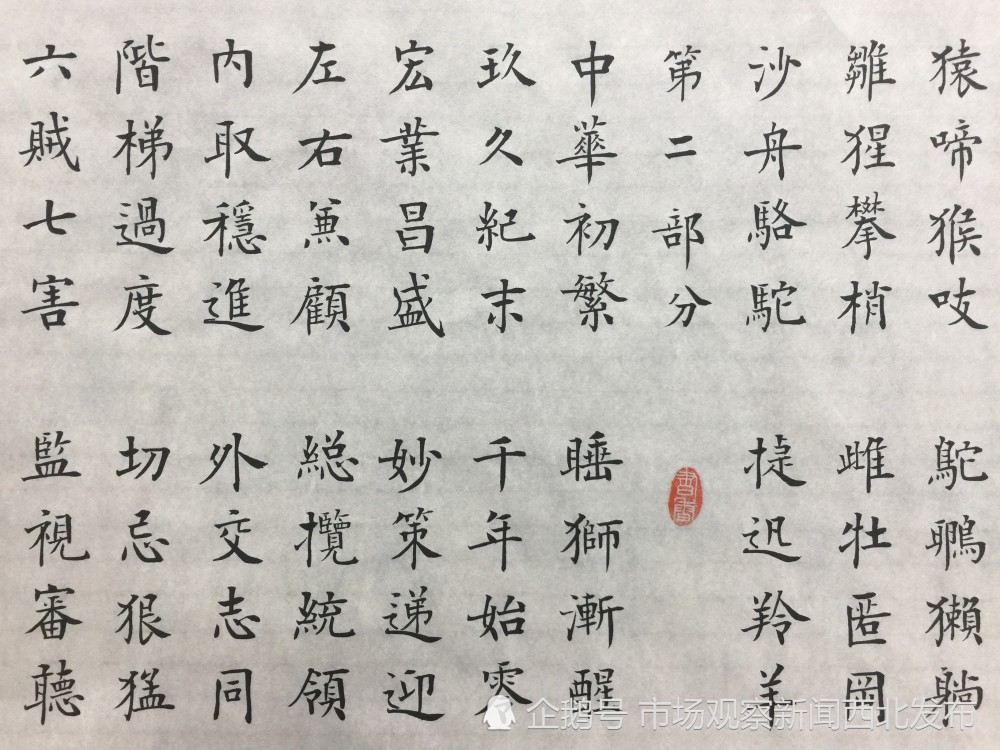 猿啼猴吱 鴕鵬獺躺
雛猩攀梢 雌牡匿岡
沙舟駱駝 捷迅羚羊
第二部分
書齋
中華初繁 睡獅漸醒
玖久紀末 千年始零
宏業昌盛 妙策递迎
左右兼顧 總攬統領
内取穩進 外交志同
階梯過度 切忌狠猛
六贼七害 監視審聽
企鹅号 市场观察新闻西北发布